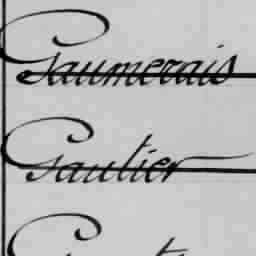 Gaumerais
Gautier